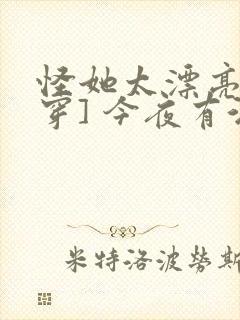 怪她太漂亮
穿] 今夜有
米特洛波勞斯